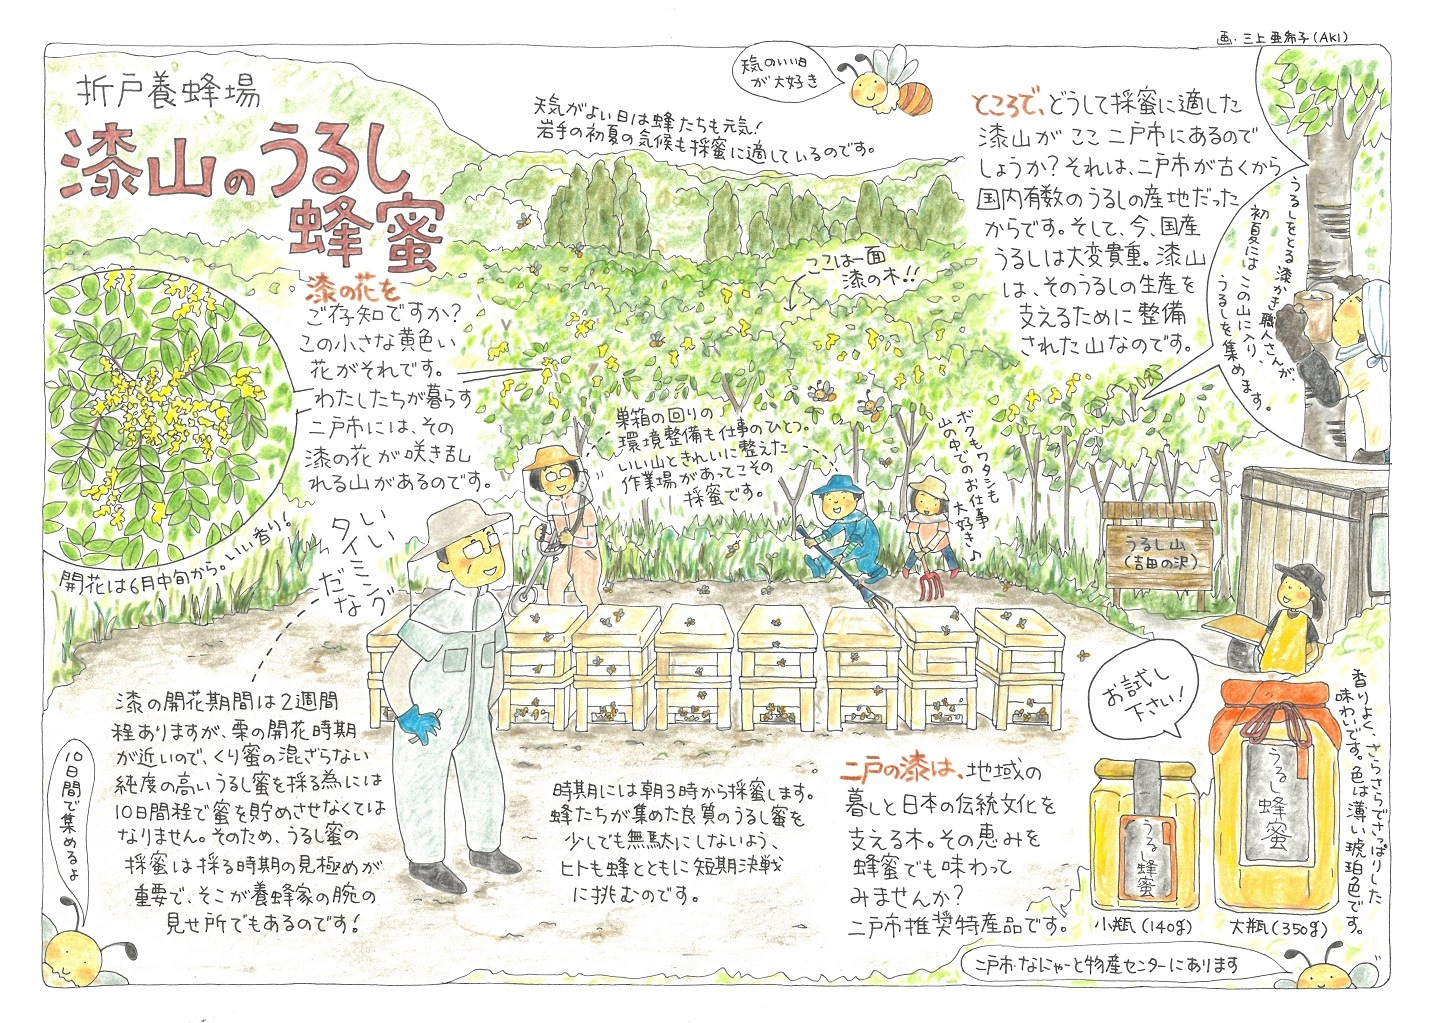 画・三上亜希子(AKI)
折戸養蜂場
漆山のうるし
蜂蜜
天気のいい日
が大好き
天気がよい日は蜂たちも元気!
岩手の初夏の気候も採蜜に適しているのです。
漆の花を
ご存知ですか?
この小さな黄色い
花がそれです。
わたしたちが暮らす
二戸市には、その
漆の花が咲き乱
れる山があるのです。
開花は6月中旬から。いい香り!
ここは一面
漆の木!!
ところで、どうして採蜜に適した
漆山がここ二戸市にあるので
しょうか?それは、二戸市が古くから
国内有数のうるしの産地だった
からです。そして、今、国産
うるしは大変貴重。漆山
は、そのうるしの生産を
支えるために整備
された山なのです。
うるしをとる漆かき職人さんが、
初夏にはこの山に入り、
うるしを集めます。
巣箱の回りの
環境整備も仕事のひとつ。
いい山ときれいに整えた
作業場があってこその
採蜜です。
ボクもワタシも
山の中でのお仕事
大好き♪
うるし山
(吉田の沢)
いい
タイミング
だな
漆の開花期間は2週間
程ありますが、栗の開花時期
が近いので、くり蜜の混ざらない
純度の高いうるし蜜を採る為には
10日間程で蜜を貯めさせなくては
なりません。そのため、うるし蜜の
採蜜は採る時期の見極めが
重要で、そこが養蜂家の腕の
見せ所でもあるのです!
10日間で集めるよ
時期には朝3時から採蜜します。
蜂たちが集めた良質のうるし蜜を
少しでも無駄にしないよう、
ヒトも蜂とともに短期決戦
に挑むのです。
二戸の漆は、地域の
暮しと日本の伝統文化を
支える木。その恵みを
蜂蜜でも味わって
みませんか?
二戸市推奨特産品です。
お試し
下さい!
うるし蜂蜜
小瓶(140g)
うるし蜂蜜
大瓶(350g)
香りよく、さらさらでさっぱりした
味わいです。色は薄い琥珀色です。
二戸市・なにゃーと物産センターにあります